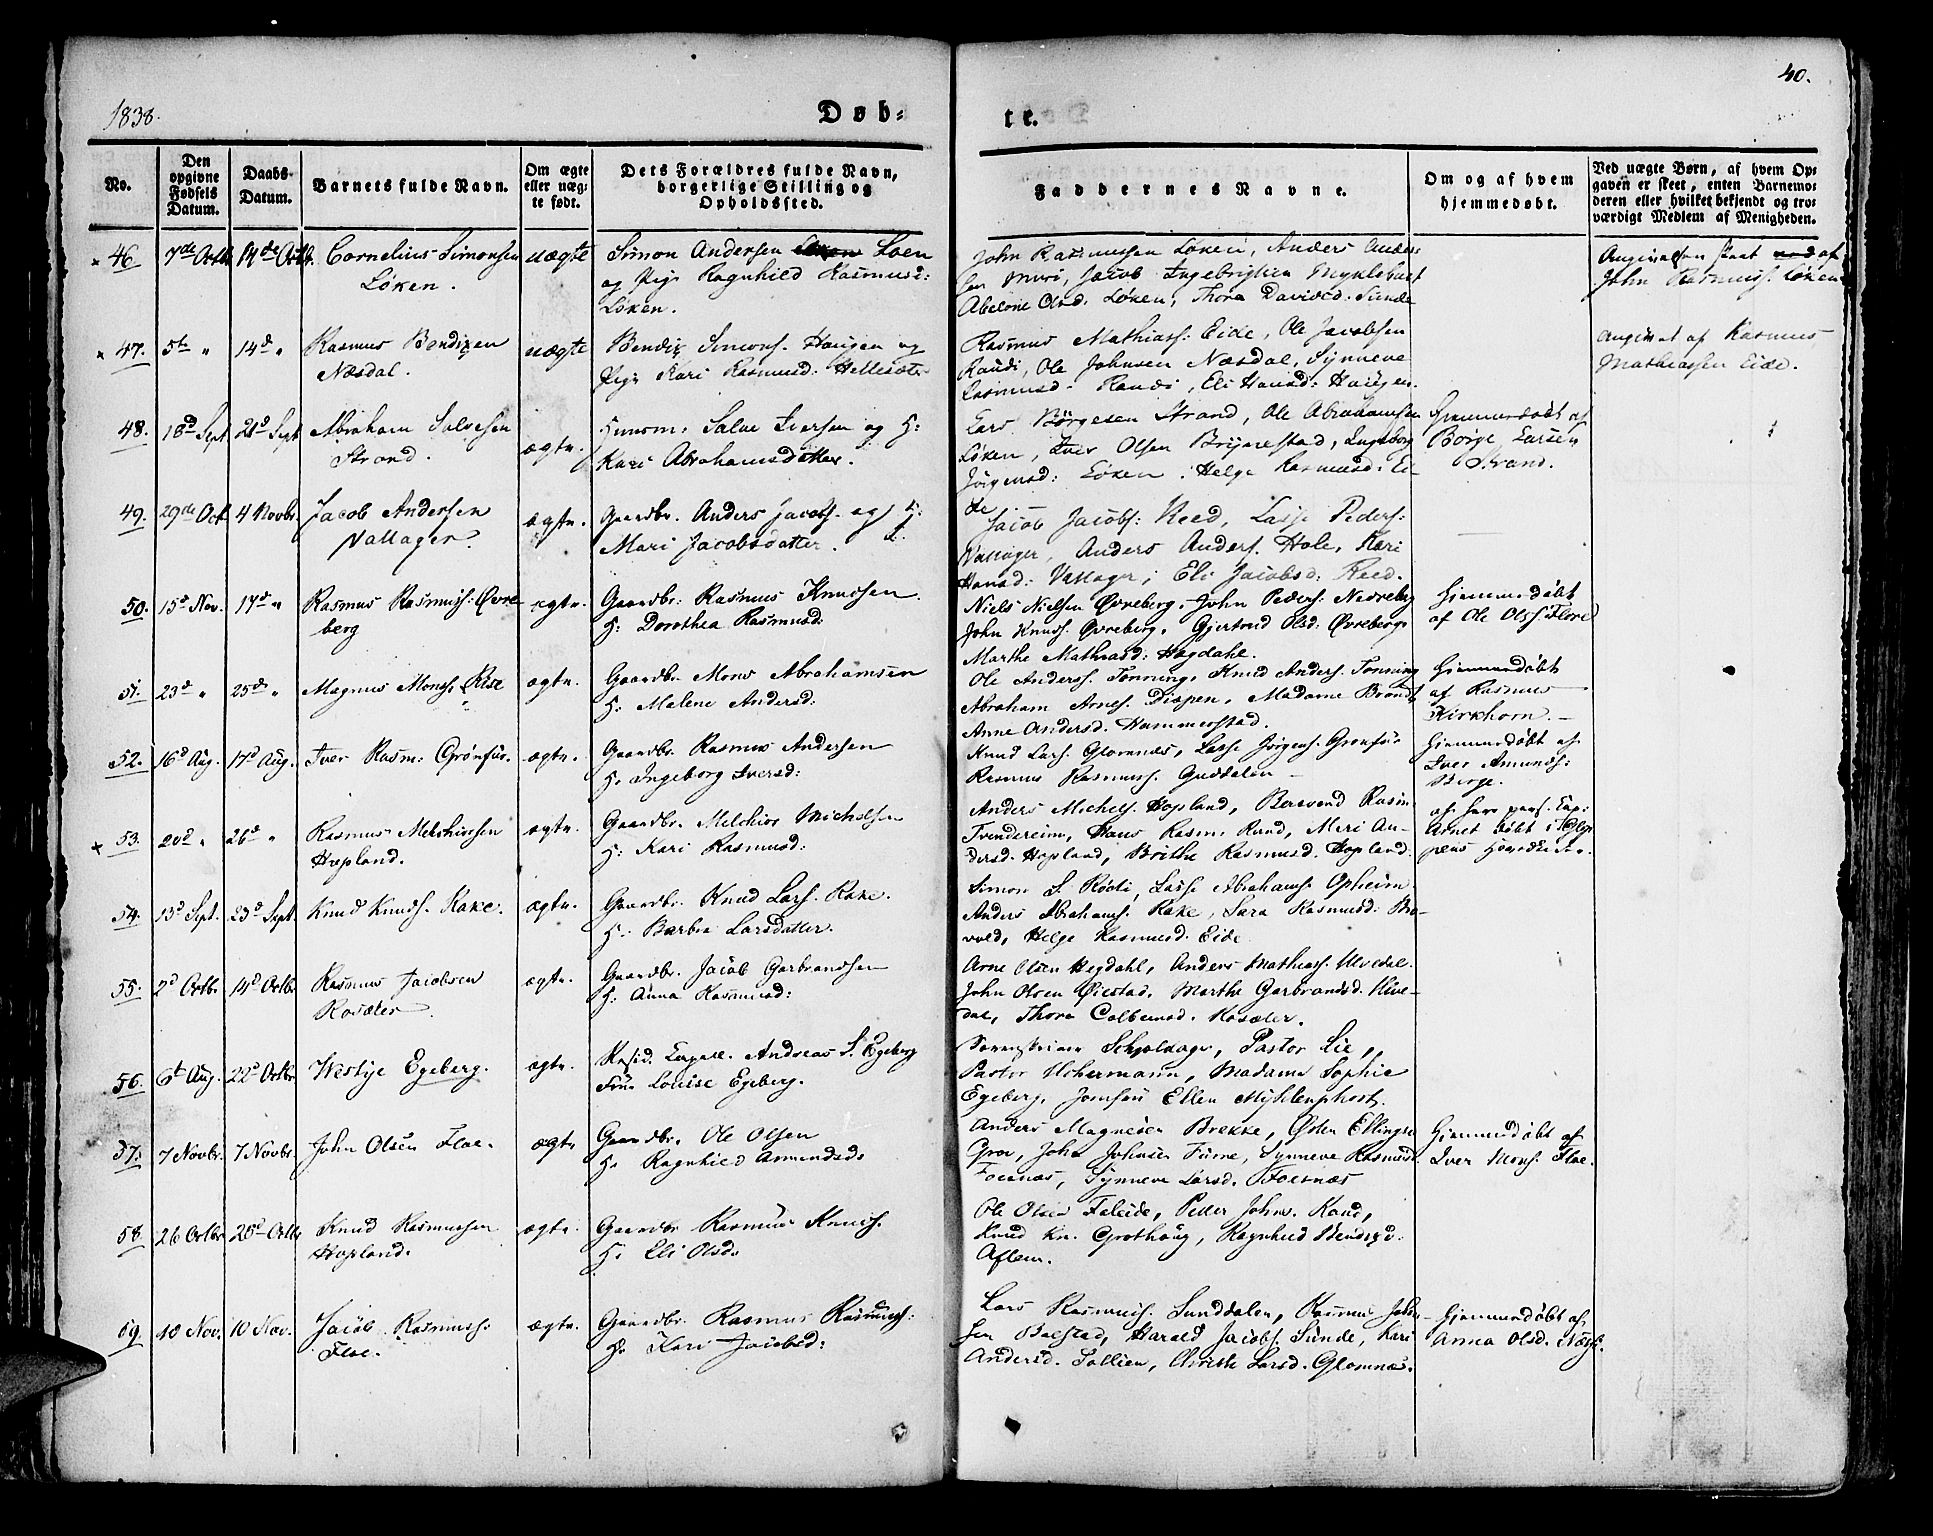 1838.
40.
Døb-
te.
No.
Den opgivne Fødsels Datum.
Daabs-Datum.
Barnets fulde Navn.
Om ægte eller uægte født.
Dets Forældres fulde Navn, borgerlige Stilling og Opholdssted.
Faddernes Navne.
Om og af hvem hjemmedøbt.
Ved uægte Børn, af hvem Opgaven er skeet, enten Barnemoderen eller hvilket bekjendt og troværdigt Medlem af Menigheden.
46. 7de Octb. 14de Octb. Cornelius Simonsen uægte Simon Andersen Loen
Løken. og Pige Ragnhild Rasmusd:
Løken.
John Rasmussen Løken, Anders Anders
sen Muri, Jacob Ingebrigtsen Myklebust
Abelone Olsd. Løken, Thora Davidsd. Sunde
Angivelsen skeet af
John Rasmuss. Løken
47. 5te " 14d " Rasmus Bendixen uægte Bendix Simons. Haugen og
Næsdal. Pige Kari Rasmusd: Hellesæt
Rasmus Mathias: Eide, Ole Jacobsen
Raudi, Ole Johnsen Næsdal, Synneve
Rasmusd. Raudi, Eli Hansd: Haugen.
Angivet af Rasmus
Mathiassen Eide.
48. 18d Sept. 21d Sept. Abraham Salvesen ægte. Huusm: Salve Iversen og H:
Strand. Kari Abrahamsdatter.
Lars Børgesen Strand, Ole Abrahamsen
Løken, Iver Olsen Brynestad, Ingeborg
Jørgensd: Løken. Helge Rasmusd: Ei-
de
Hjemmedøbt af
Børge Larsen
Strand.
49. 29de Oct. 4 Novbr. Jacob Andersen ægte. Gaardbr. Anders Jacobs. og H:
Vallager. Mari Jacobsdatter.
Jacob Jacobs: Reed, Lasse Peders:
Vallager, Anders Anders. Hole, Kari
Hansd: Vallager, Eli Jacobsd: Reed.
50. 15d Nov. 17d " Rasmus Rasmuss: Øvre- ægte. Gaardbr: Rasmus Knudsen.
berg H: Dorothea Rasmusd:
Niels Nielsen Øvreberg, John Peders: Nedreberg
John Knuds. Øvreberg, Gjertrud Olsd: Øvreberg
Marthe Mathiasd: Hægdahl.
Hjemmedøbt
af Ole Olss. Floed
51. 23d " 25d " Magnus Mons. Rise ægte. Gaardbr Mons Abrahamsen
H: Malene Andersd:
Ole Anderss. Tonning, Knud Anders. Tonning
Abraham Arnes. Dispen, Madame Brandt,
Anne Andersd. Hammerstad.
Hjemmedøbt
af Rasmus
Kirkhorn.
52. 16d Aug. 17d Aug. Iver Rasm: Grønfur. ægte. Gaardbr. Rasmus Andersen
H. Ingeborg Iversd:
Knud Lars. Glomnæs, Lasse Jørgens. Grønfur
Rasmus Rasmuss. Guddalen
Hjemmedøbt af
Iver Amunds:
Berge.
53. 20d " 26d " Rasmus Melchiorsen ægte. Gaardbr. Melchior Michelsen
Hopland. H: Kari Rasmusd:
Anders Michels. Hopland, Rasm
Hans Rasm. Rand, Mari An-
dersd. Hopland, Brithe Rasmusd. Hopland.
54. 13d Sept. 23d Sept. Knud Knuds. Rake. ægte. Gaardbr. Knud Lars. Rake.
H: Barbra Larsdatter.
Simon S. Rødi, Lasse Abrahams. Opheim
Anders Abrahams. Rake, Sara Rasmusd: Bre-
vold, Helge Rasmusd. Eide
55. 2d Octbr. 14d Octbr. Rasmus Jacobsen ægte. Gaardbr. Jacob Garbrandsen
Rosæter. H: Anna Rasmusd:
Arne Olsen Hegdahl, Anders Mathias. Ulvedal.
John Olsen Øiestad. Marthe Garbrandsd. Ulve-
dal, Thora Rosæter.
56. 6te Aug. 22d Octbr. Westye Egeberg. ægte. Resid. Capell. Andreas S. Egeberg
Frue Louise Egeberg.
Sorenskriver Schjoldager, Pastor Lie,
Pastor Uchermann, Madame Sophie
Egeberg, Jomfru Ellen Myhlenphort.
57. 7 Novbr. 7 Novbr. John Olsen Floe. ægte Gaardbr. Ole Olsen
H. Ragnhild Amundsd.
Anders Magnesen Brekke, Østen Ellings
Grov, John Johnsen Furne, Synneve Rasmusd.
Foesnæs, Synneve Larsd. Foesnæs
Hjemmedøbt af
Iver Mons. Floe.
58. 26 Octbr. 28d Octbr Knud Rasmussen ægte. Gaardbr Rasmus Knuds.
Hopland. H. Eli Olsd.
Ole Olsen Faleide, Peder Johns. Rand,
Knud Kn. Grothaug, Ragnhild Bendixd:
Aflem.
59. 10 Nov. 10 Nov. Jacob Rasmuss: ægte. Gaardbr. Rasmus Rasmuss:
Floe. H. Kari Jacobsd:
Lars Rasmuss. Sunddalen, Rasmus Johan-
sen Bolstad, Harald Jacobs. Sunde, Kari
Andersd. Sollien, Christi Larsd. Glomnæs.
Hjemmedøbt af
Anna Olsd.